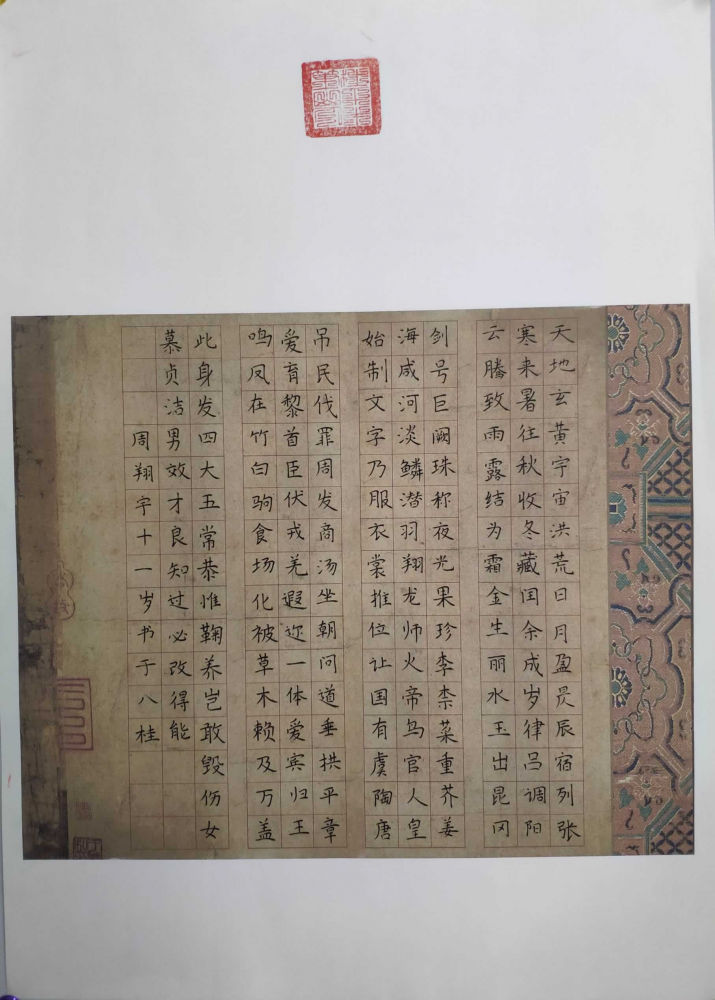 天地玄黄宇宙洪荒日月盈昃辰宿列张
寒来暑往秋收冬藏闰余成岁律吕调阳
云腾致雨露结为霜金生丽水玉出昆冈
剑号巨阙珠称夜光果珍李柰菜重芥姜
海咸河淡鳞潜羽翔龙师火帝鸟官人皇
始制文字乃服衣裳推位让国有虞陶唐
吊民伐罪周发商汤坐朝问道垂拱平章
爱育黎首臣伏戎羌遐迩一体爱宾归王
鸣凤在竹白驹食场化被草木赖及万盖
此身发四大五常恭惟鞠养岂敢毁伤女
慕贞洁男效才良知过必改得能
周翔宇十一岁书于八桂